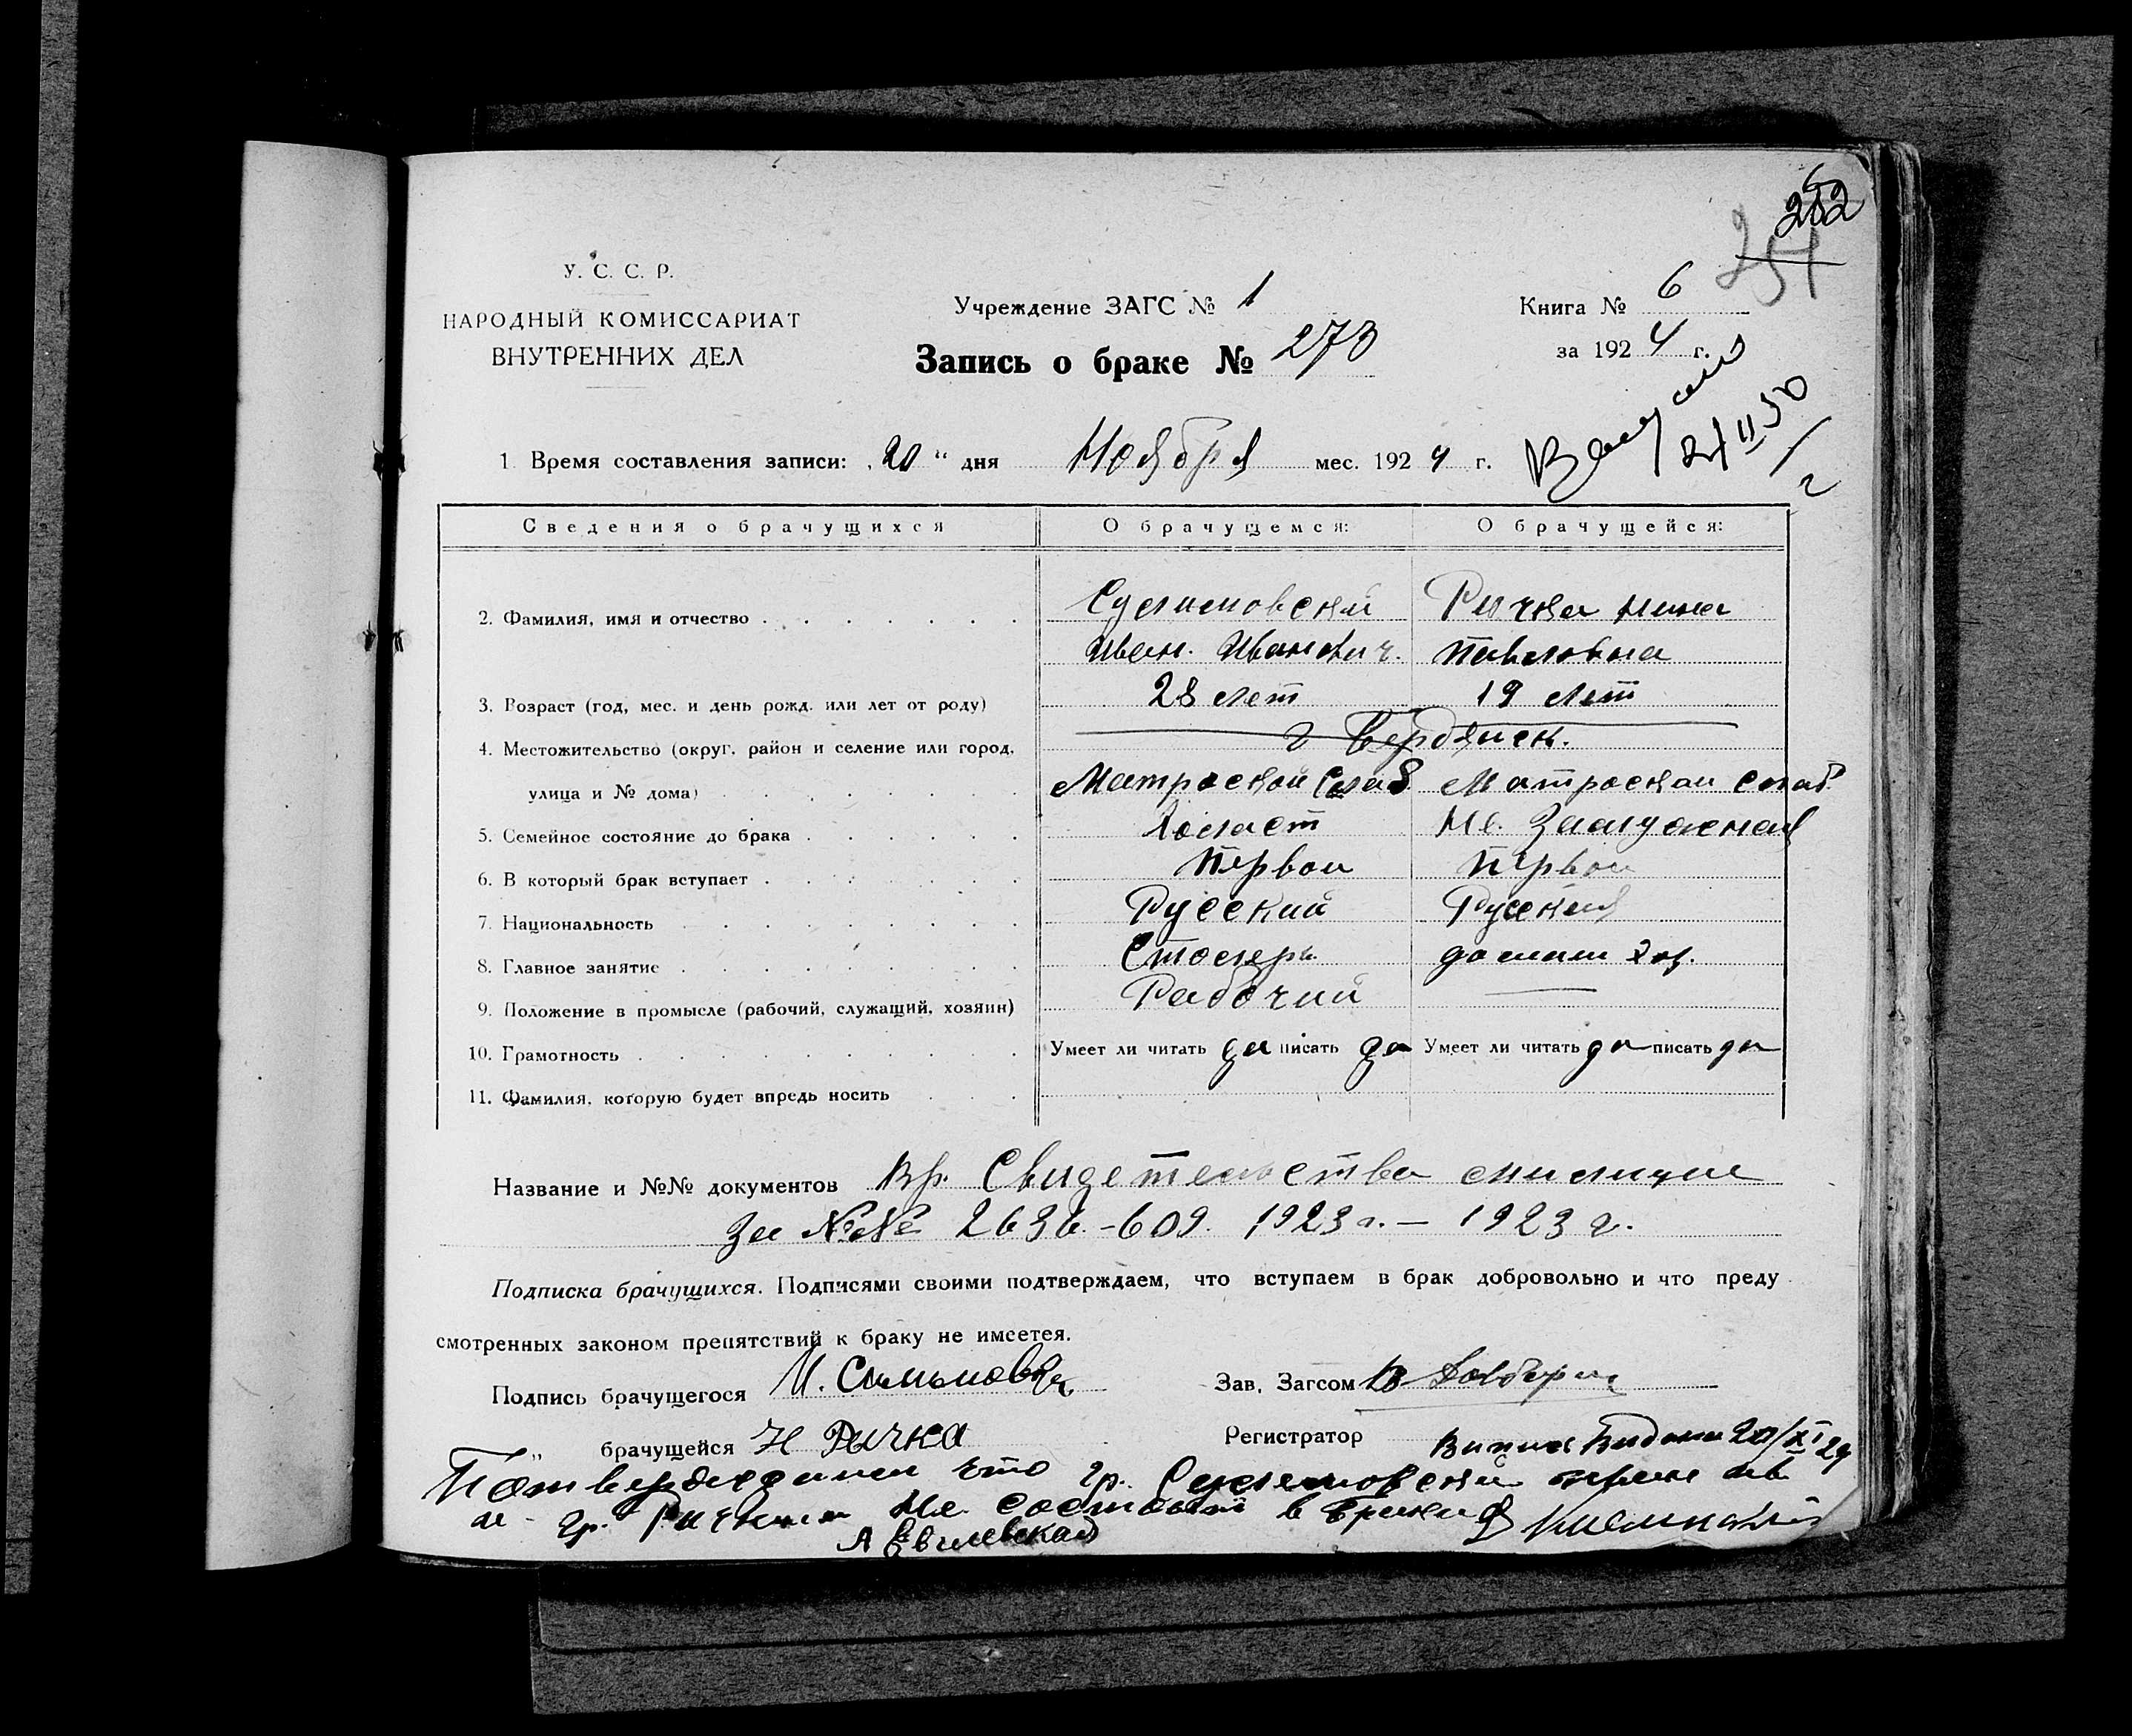 252
254
У. С. С. Р.
НАРОДНЫЙ КОМИССАРИАТ
ВНУТРЕННИХ ДЕЛ
Учреждение ЗАГС № 1
Книга № 6
Запись о браке № 273
за 1924 г.
1. Время составления записи: „20“ дня Ноября мес. 1924 г.
Сведения о брачущихся О брачущемся: О брачущейся:
2. Фамилия, имя и отчество Сулимовский Ричка Нина
Иван. Иванович. Павловна
3. Возраст (год, мес. и день рожд. или лет от роду) 28 лет 19 лет
4. Местожительство (округ, район и селение или город, г Бердянск.
улица и № дома) Матроской Слаб Матроской слаб
5. Семейное состояние до брака Холост Не. Замужная
6. В который брак вступает Первой Первой
7. Национальность Русский Руская
8. Главное занятие Столяръ домаш хоз.
9. Положение в промысле (рабочий, служащий, хозяин) Рабочий —
10. Грамотность Умеет ли читать да писать да Умеет ли читать да писать да
11. Фамилия, которую будет впредь носить
Название и №№ документов Вр. Свидетельства милиции
За №№ 2636-609. 1923 г. — 1923 г.
Подписка брачущихся. Подписями своими подтверждаем, что вступаем в брак добровольно и что преду
смотренных законом препятствий к браку не имеется.
Подпись брачущегося И.
Зав. Загсом
„ брачущейся Н Ричка
Регистратор
20/XI 24
Потверждаем что гр. Сулимовский
гр. Ричкина Не состоят в браки